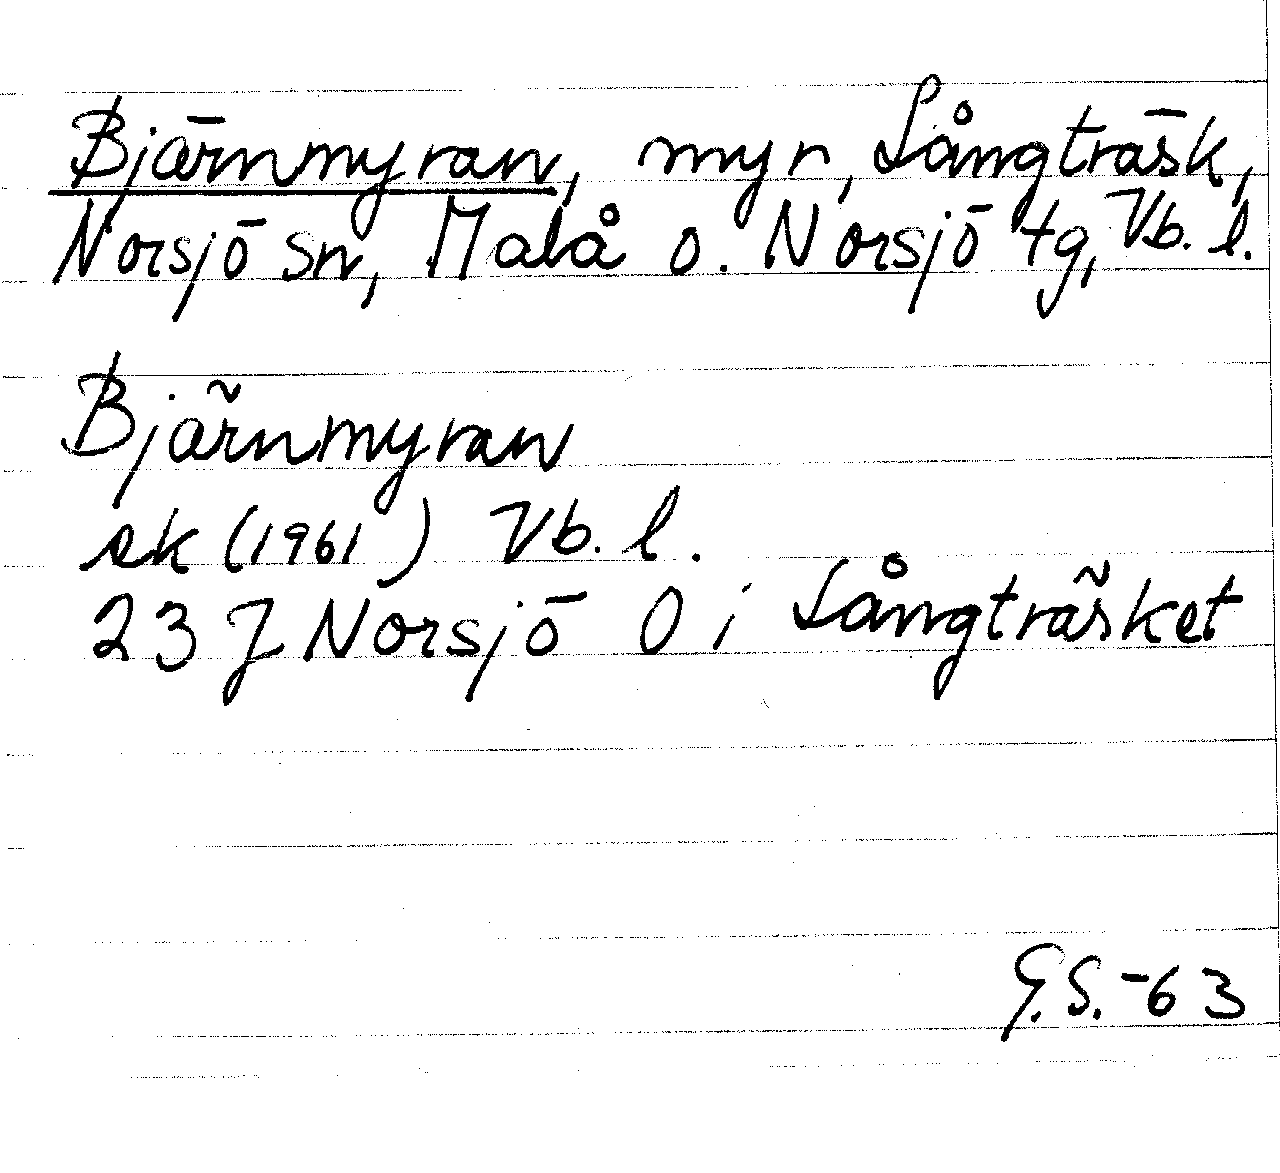 Bjärnmyran, myr, Långträsk,
Norsjö sn, Malå o. Norsjö tg, Vb. l.
Bjärnmyran
ek (1961) Vb. l.
23 J Norsjö 0 i Långträsket
G.S. -63